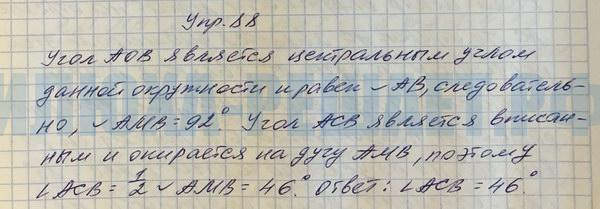 Упр. 88
Угол AOB является центральным углом
данной окружности и равен ◡AB, следователь-
но, ◡AMB = 92°. Угол ACB является вписан-
ным и опирается на дугу AMB, поэтому
∠ACB = 1/2 ◡AMB = 46°. Ответ: ∠ACB = 46°.